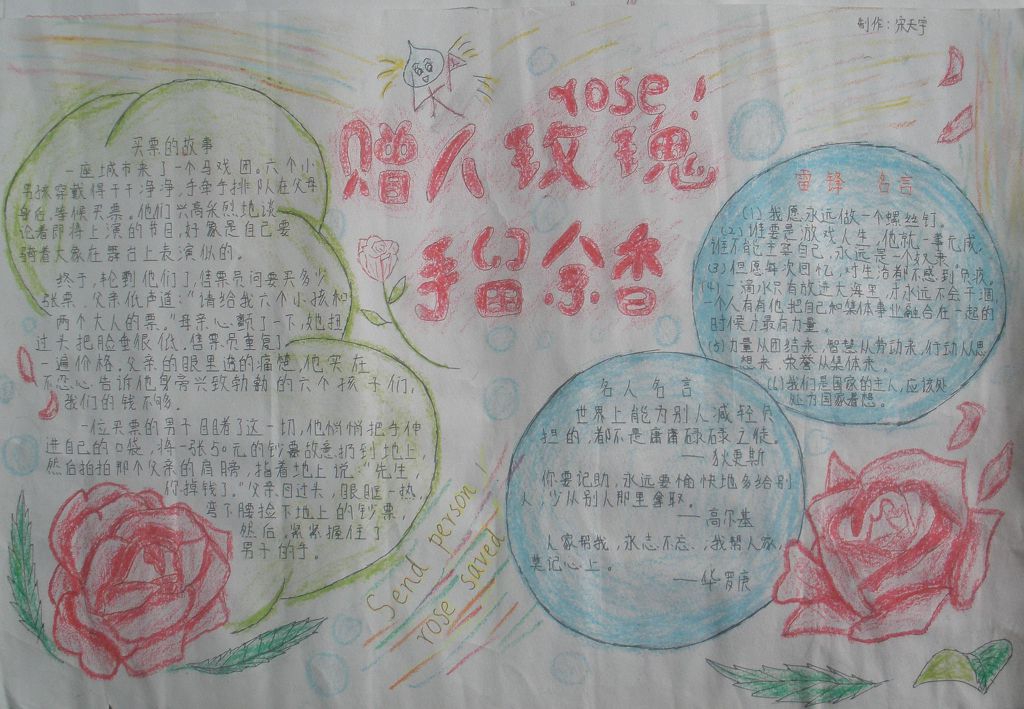 制作：宋天宇
rose！
赠人玫瑰
手留余香
买票的故事
一座城市来了一个马戏团。六个小
男孩穿戴得干干净净，手牵手排队在父母
身后，等候买票。他们兴高采烈地谈
论着即将上演的节目，好象是自己要
骑着大象在舞台上表演似的。
终于，轮到他们了，售票员问要买多少
张票，父亲低声道：“请给我六个小孩和
两个大人的票。”母亲心颤了一下，她扭
过头把脸垂很低。售票员重复了
一遍价格。父亲的眼里透的痛楚，他实在
不忍心告诉他身旁兴致勃勃的六个孩子们，
我们的钱不够。
一位买票的男子目睹了这一切，他悄悄把手伸
进自己的口袋，将一张50元的钞票故意扔到地上，
然后拍拍那个父亲的肩膀，指着地上说：“先生
你掉钱了。”父亲回过头，眼眶一热，
弯下腰捡下地上的钞票，
然后，紧紧握住了
男子的手。
雷锋 名言
(1)我愿永远做一个螺丝钉。
(2)谁要是放戏人生，他就一事无成，
谁不能主宰自己，永远是一个奴隶。
(3)但愿每次回忆，对生活都不感到负疚。
(4)一滴水只有放进大海里，才永远不会干涸，
一个人有有他把自己和集体事业融合在一起的
时候才最有力量。
(5)力量从团结来，智慧从劳动来，行动从思
想来，荣誉从集体来。
(6)我们是国家的主人，应该处
处为国家着想。
名人名言
世界上能为别人减轻负
担的，都不是庸庸碌碌之徒。
——狄更斯
你要记助，永远要愉快地多给别
人，少从别人那里拿取。
——高尔基
人家帮我，永志不忘，我帮人家，
莫记心上。
——华罗庚
Send person
rose saved